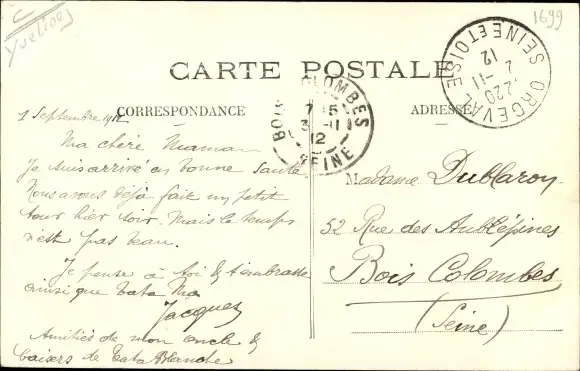 Yvelines
1699
CARTE POSTALE
CORRESPONDANCE
ADRESSE
ORGEVAL
SEINE ET OISE
12
BOIS COLOMBES
7 15
3 -11
12
SEINE
1 Septembre
Ma chère Maman
Je suis arrivé en bonne santé
Nous avons déjà fait un petit
tour hier soir. Mais le temps
n'est pas beau.
Je pense à toi & t'embrasse
ainsi que tata Ma
Jacques
Amitiés de mon oncle &
baisers de tata Blanche
Madame Dublaron
52 Rue des Aubépines
Bois Colombes
(Seine)